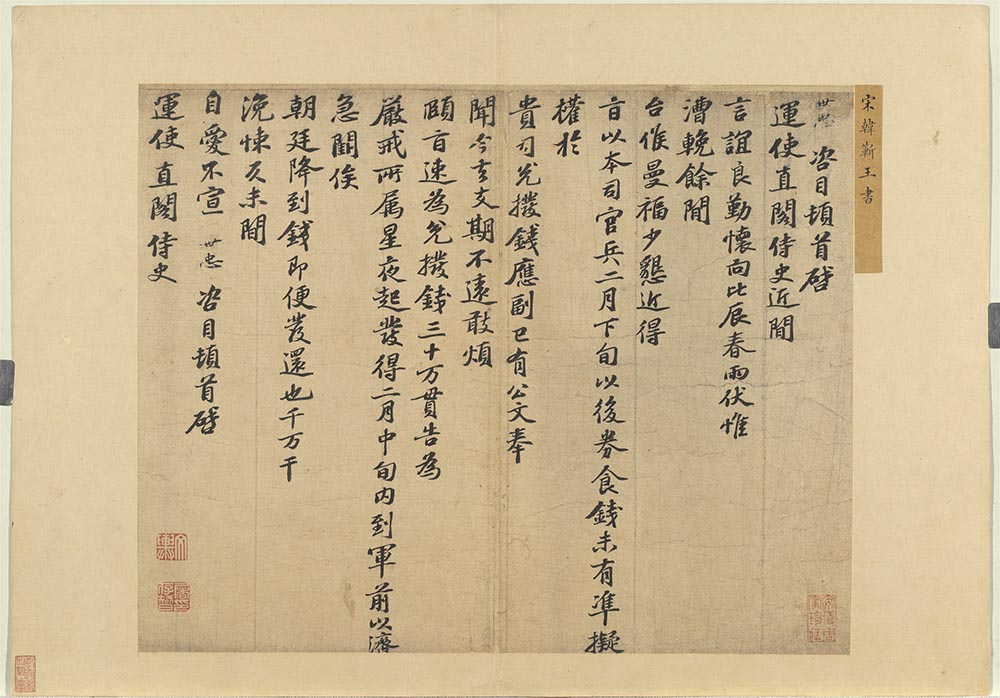 宋韓蘄王書
世忠 咨目頓首啓
運使直閣侍史近間
言誼良勤懷向比辰春雨伏惟
漕輓餘間
台候曼福少懇近得
旨以本司官兵二月下旬以後券食錢未有準擬
權於
貴司兌撥錢應副已有公文奉
聞今去支期不遠敢煩
頤旨速為兌撥錢三十万貫告為
嚴戒所属星夜起發得二月中旬內到軍前以濟
急闕俟
朝廷降到錢即便發還也千万干
浼悚久未間
自愛不宣 世忠 咨目頓首啓
運使直閣侍史